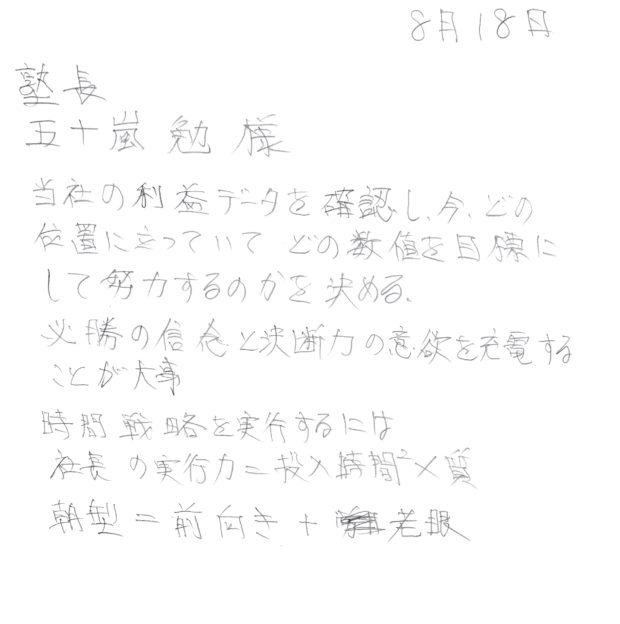 8月18日
塾長
五十嵐 勉 様
当社の利益データを確認し、今、どの
位置に立っていて どの数値を目標に
して努力するのかを決める、
必勝の信念と決断力の意欲を充電する
ことが大事
時間戦略を実行するには
社長の実行力=投入時間²×質
朝型=前向き+老眼